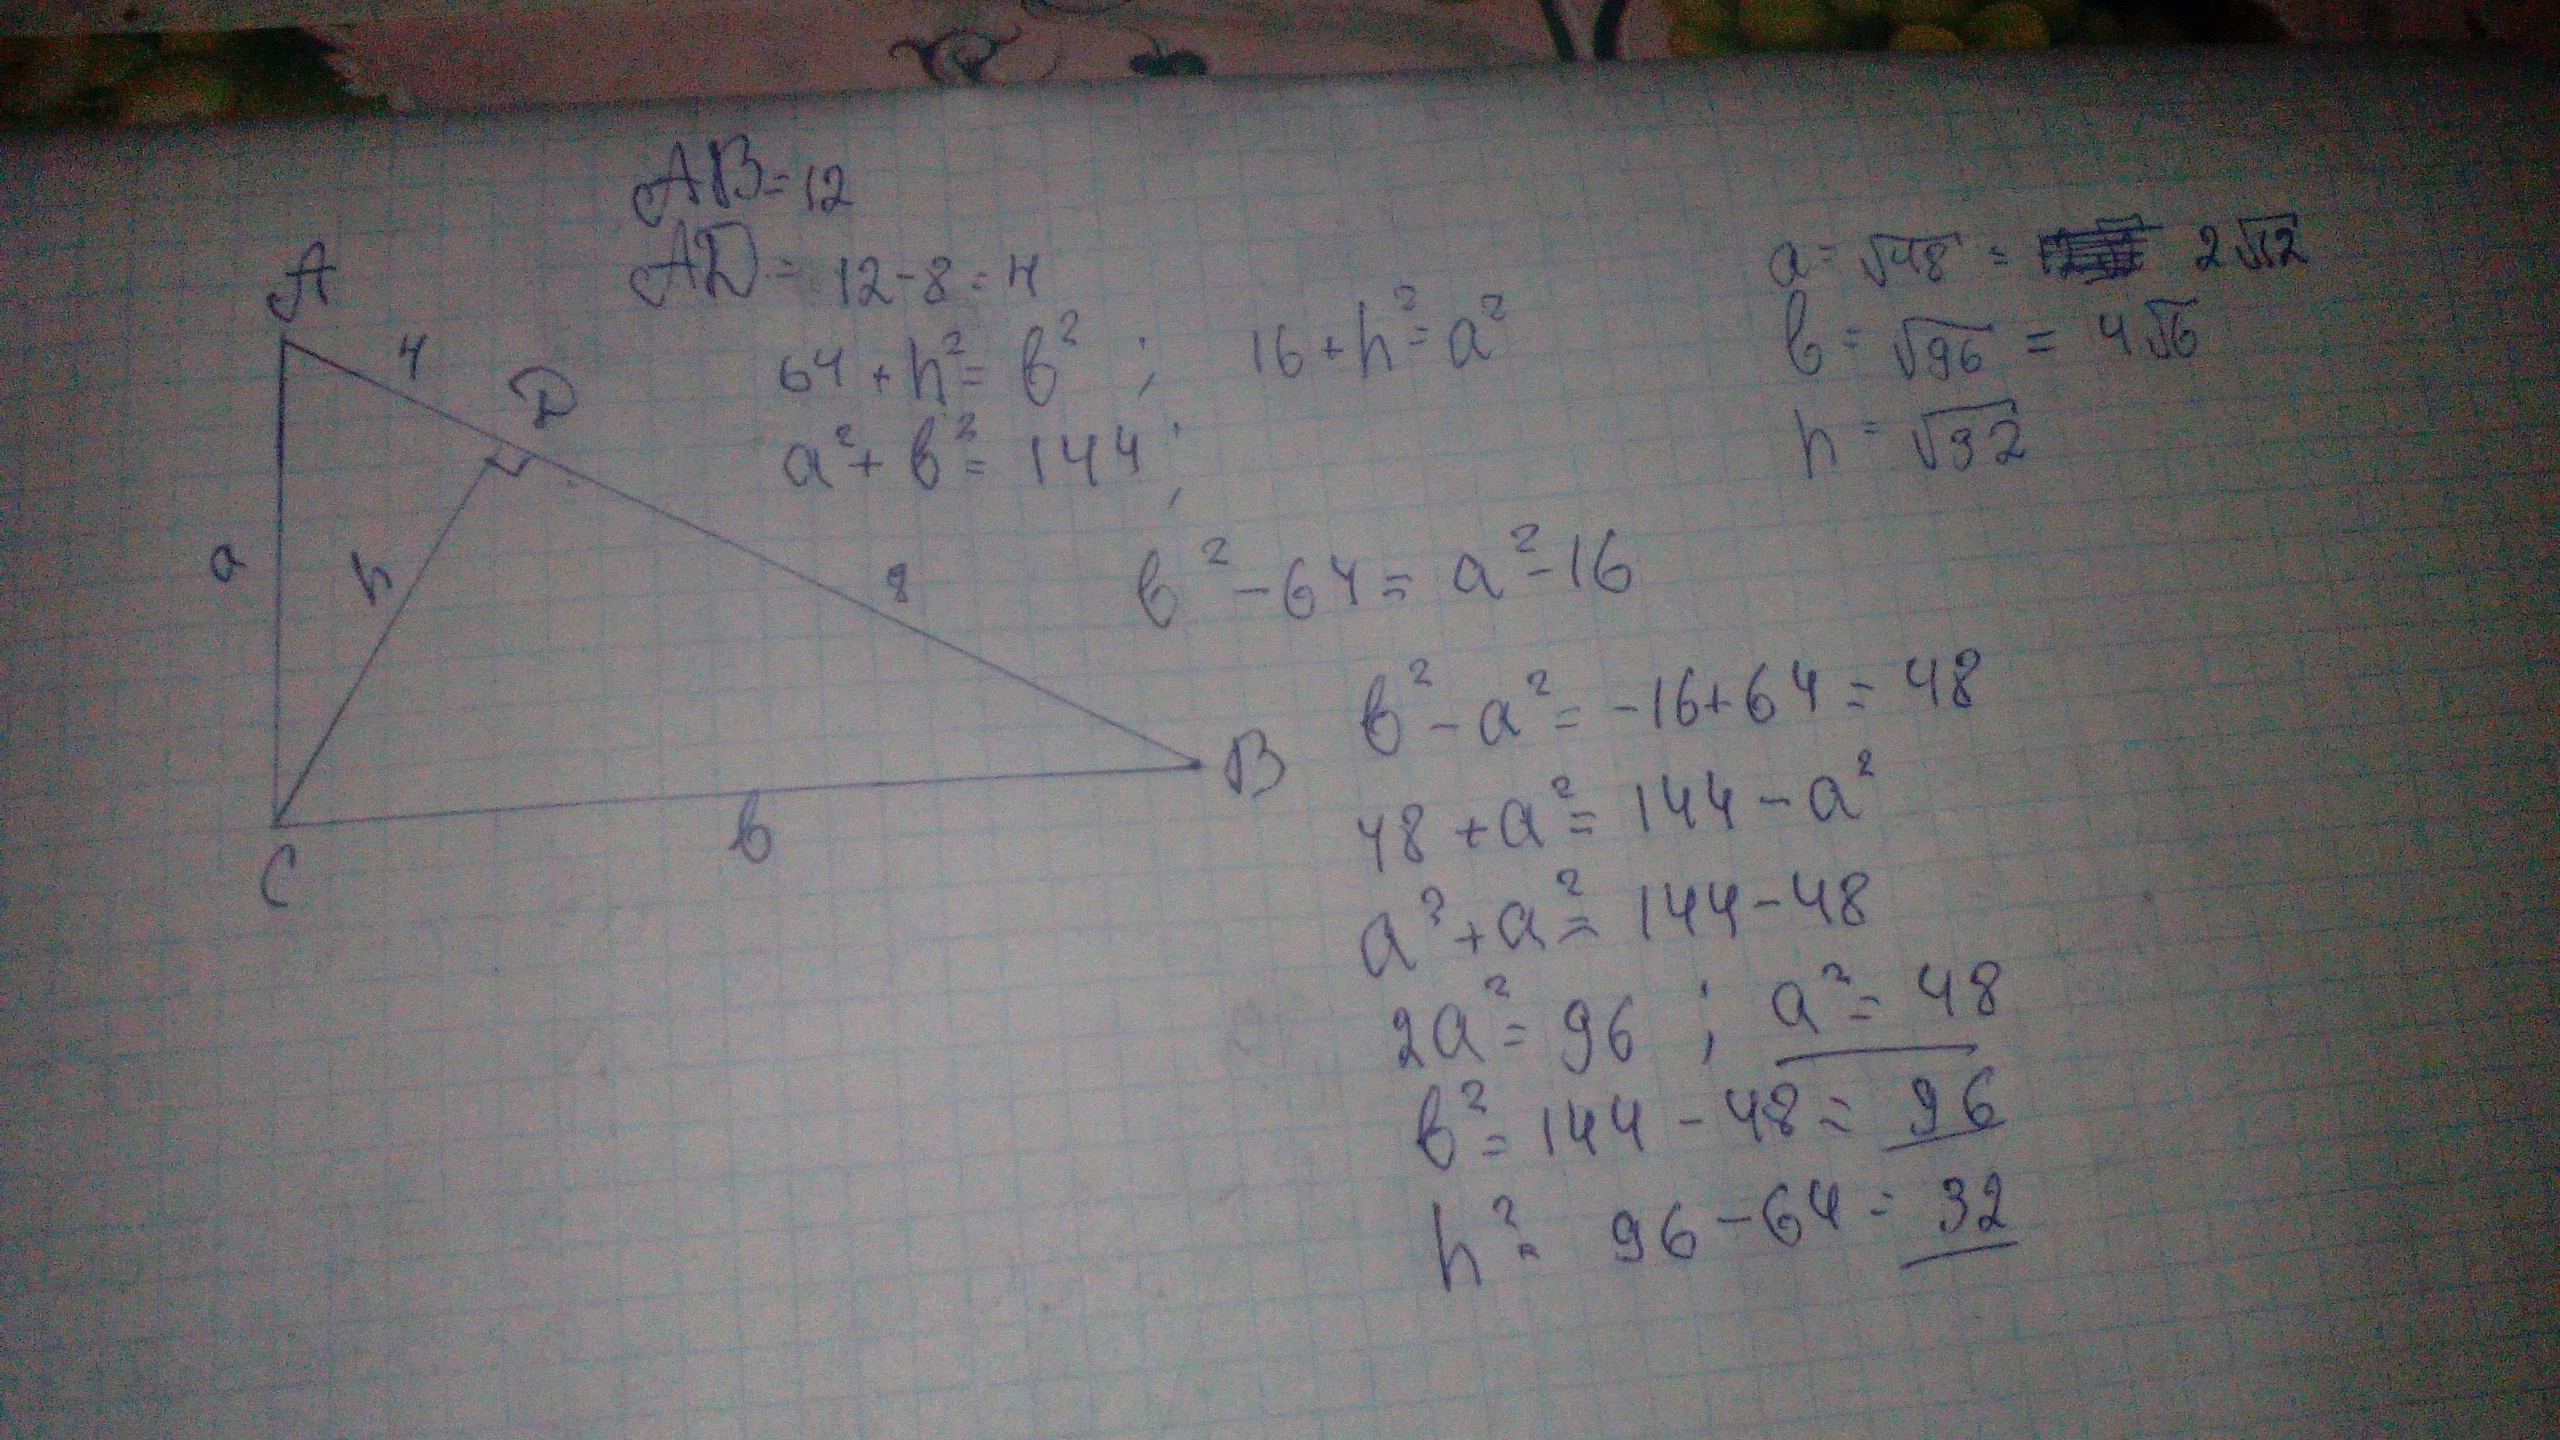 AB=12
AD = 12-8=4
64+h²=b² ; 16+h²=a²
a²+b²=144;
a=√48 = 2√12
b=√96 = 4√6
h=√32
A
4
D
a
h
8
B
b
C
b²-64=a²-16
b²-a²=-16+64=48
48+a²=144-a²
a²+a²=144-48
2a²=96 ; a²=48
b²=144-48=96
h²=96-64=32